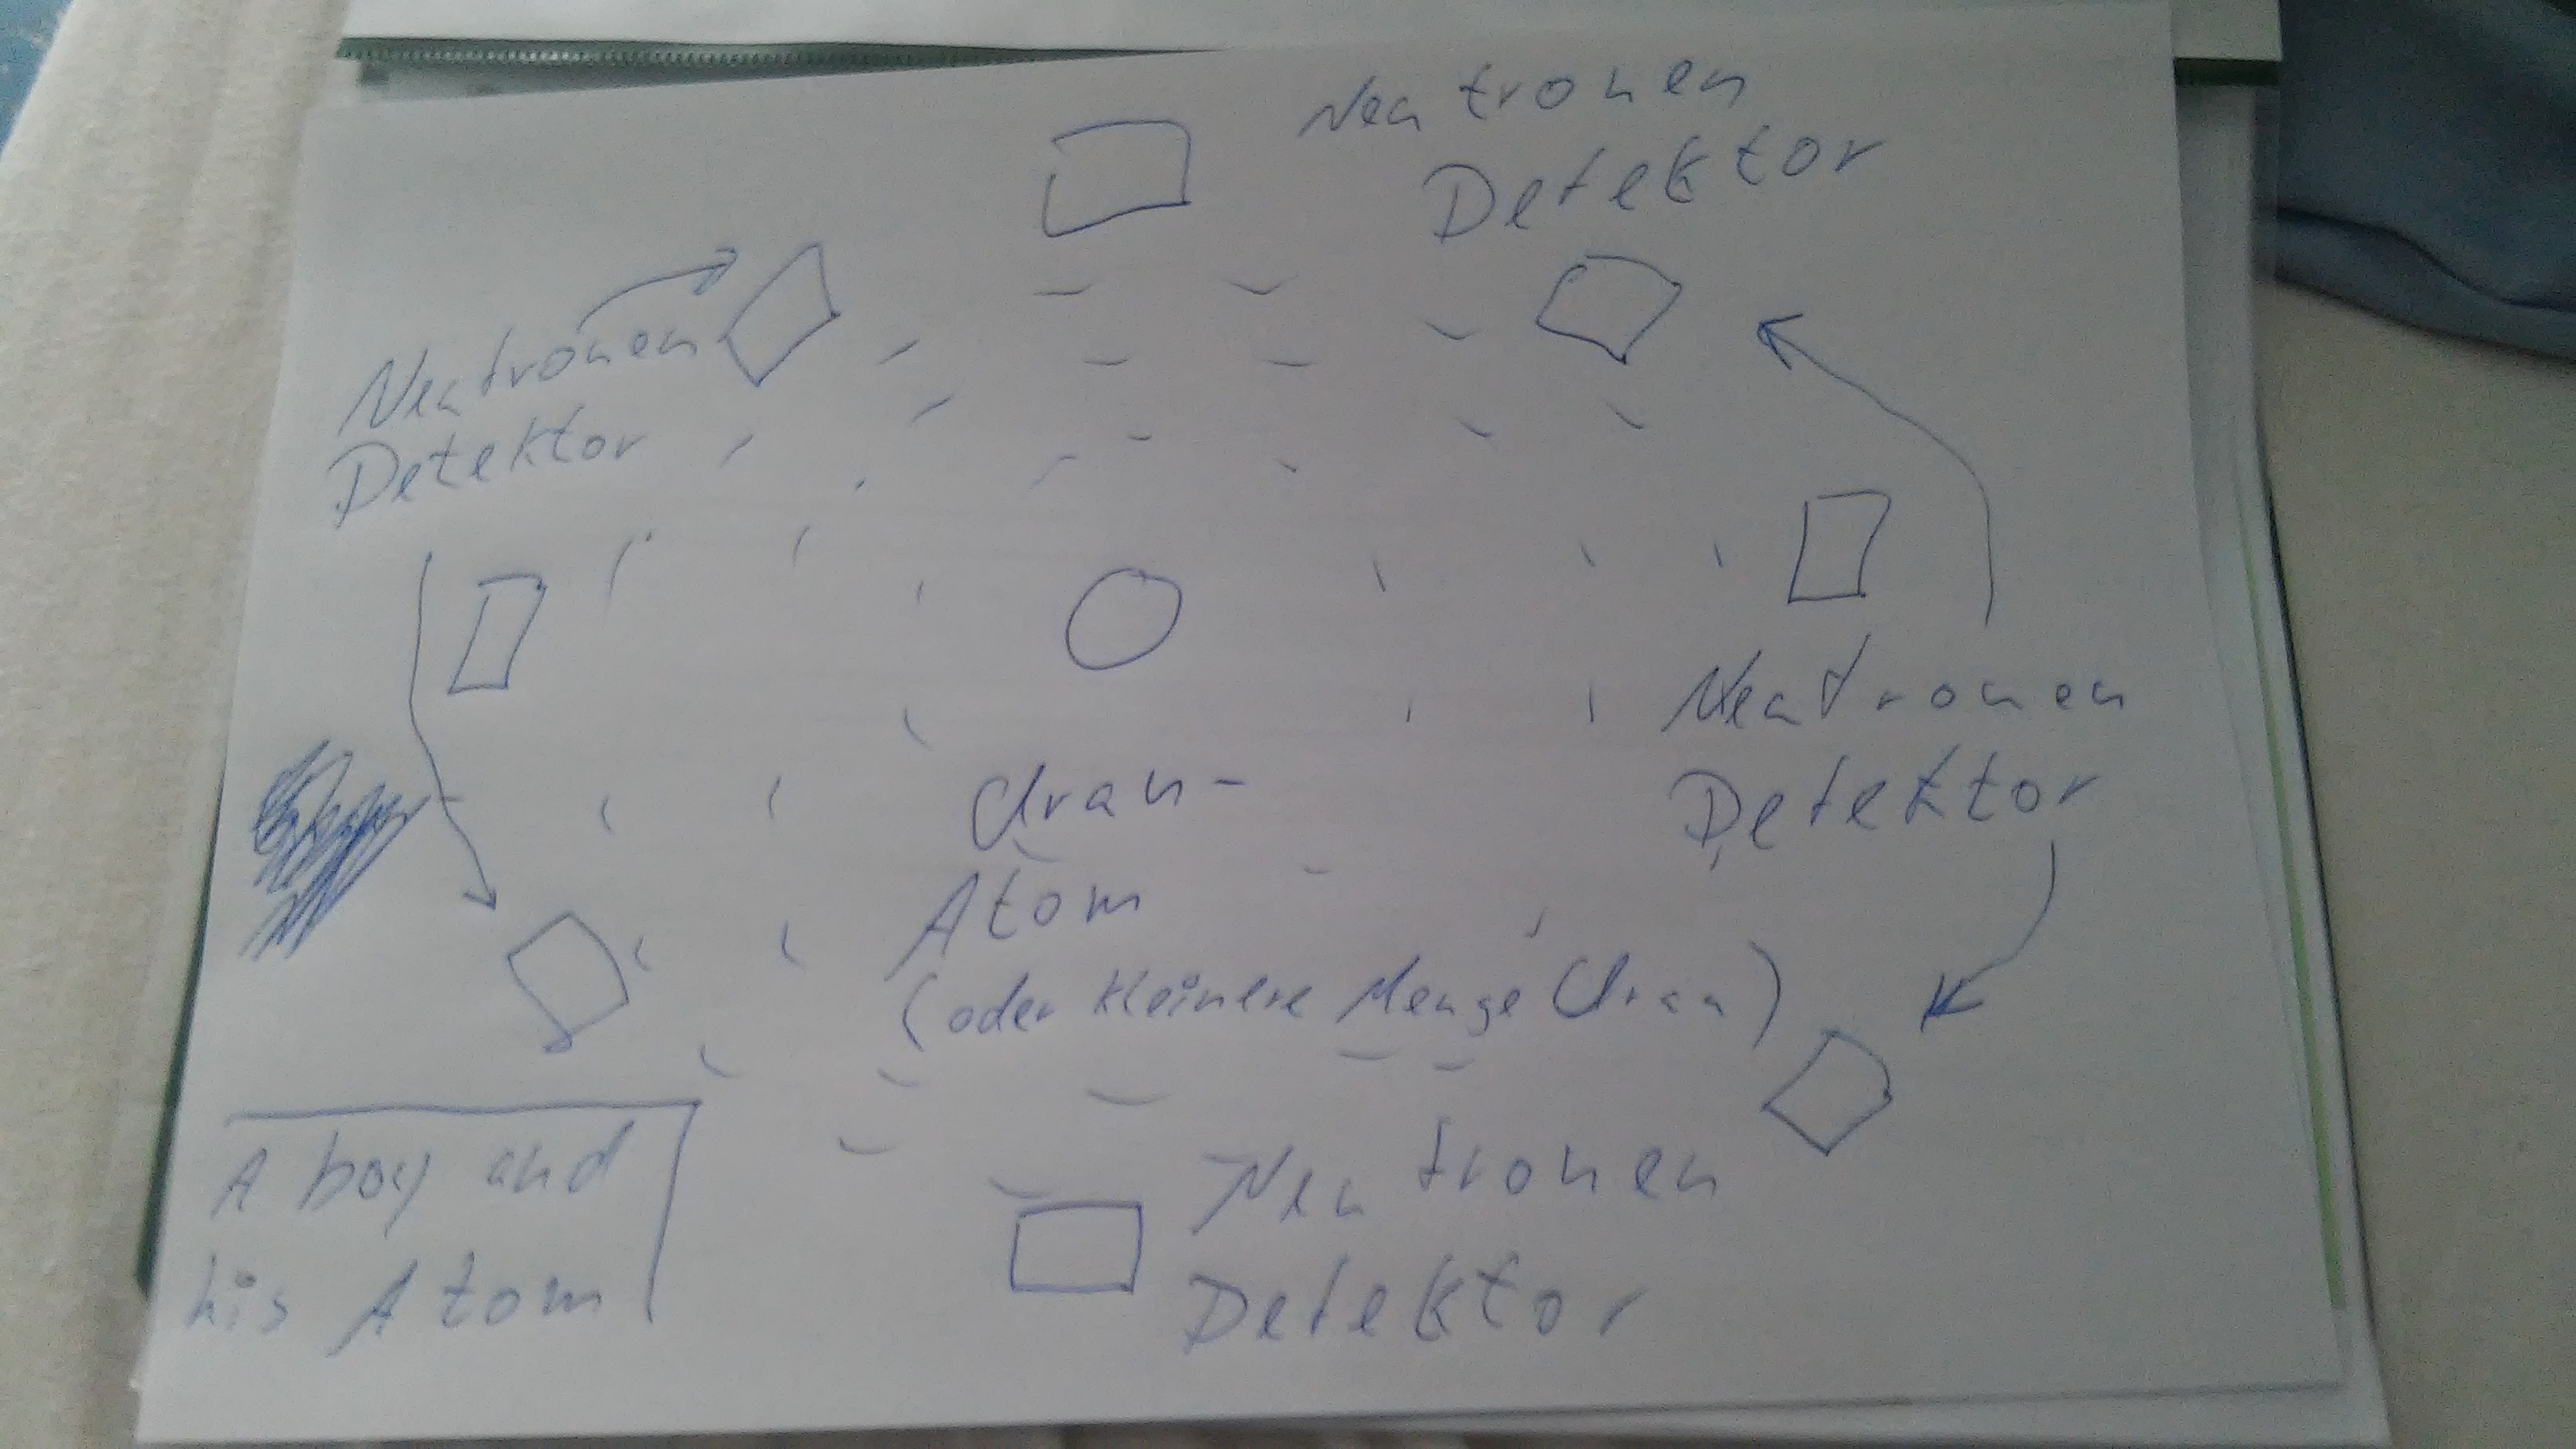 Neutronen
Detektor
Neutronen
Detektor
Neutronen
Detektor
Uran-
Atom
(oder kleinere Menge Uran)
A boy and
his Atom
Neutronen
Detektor